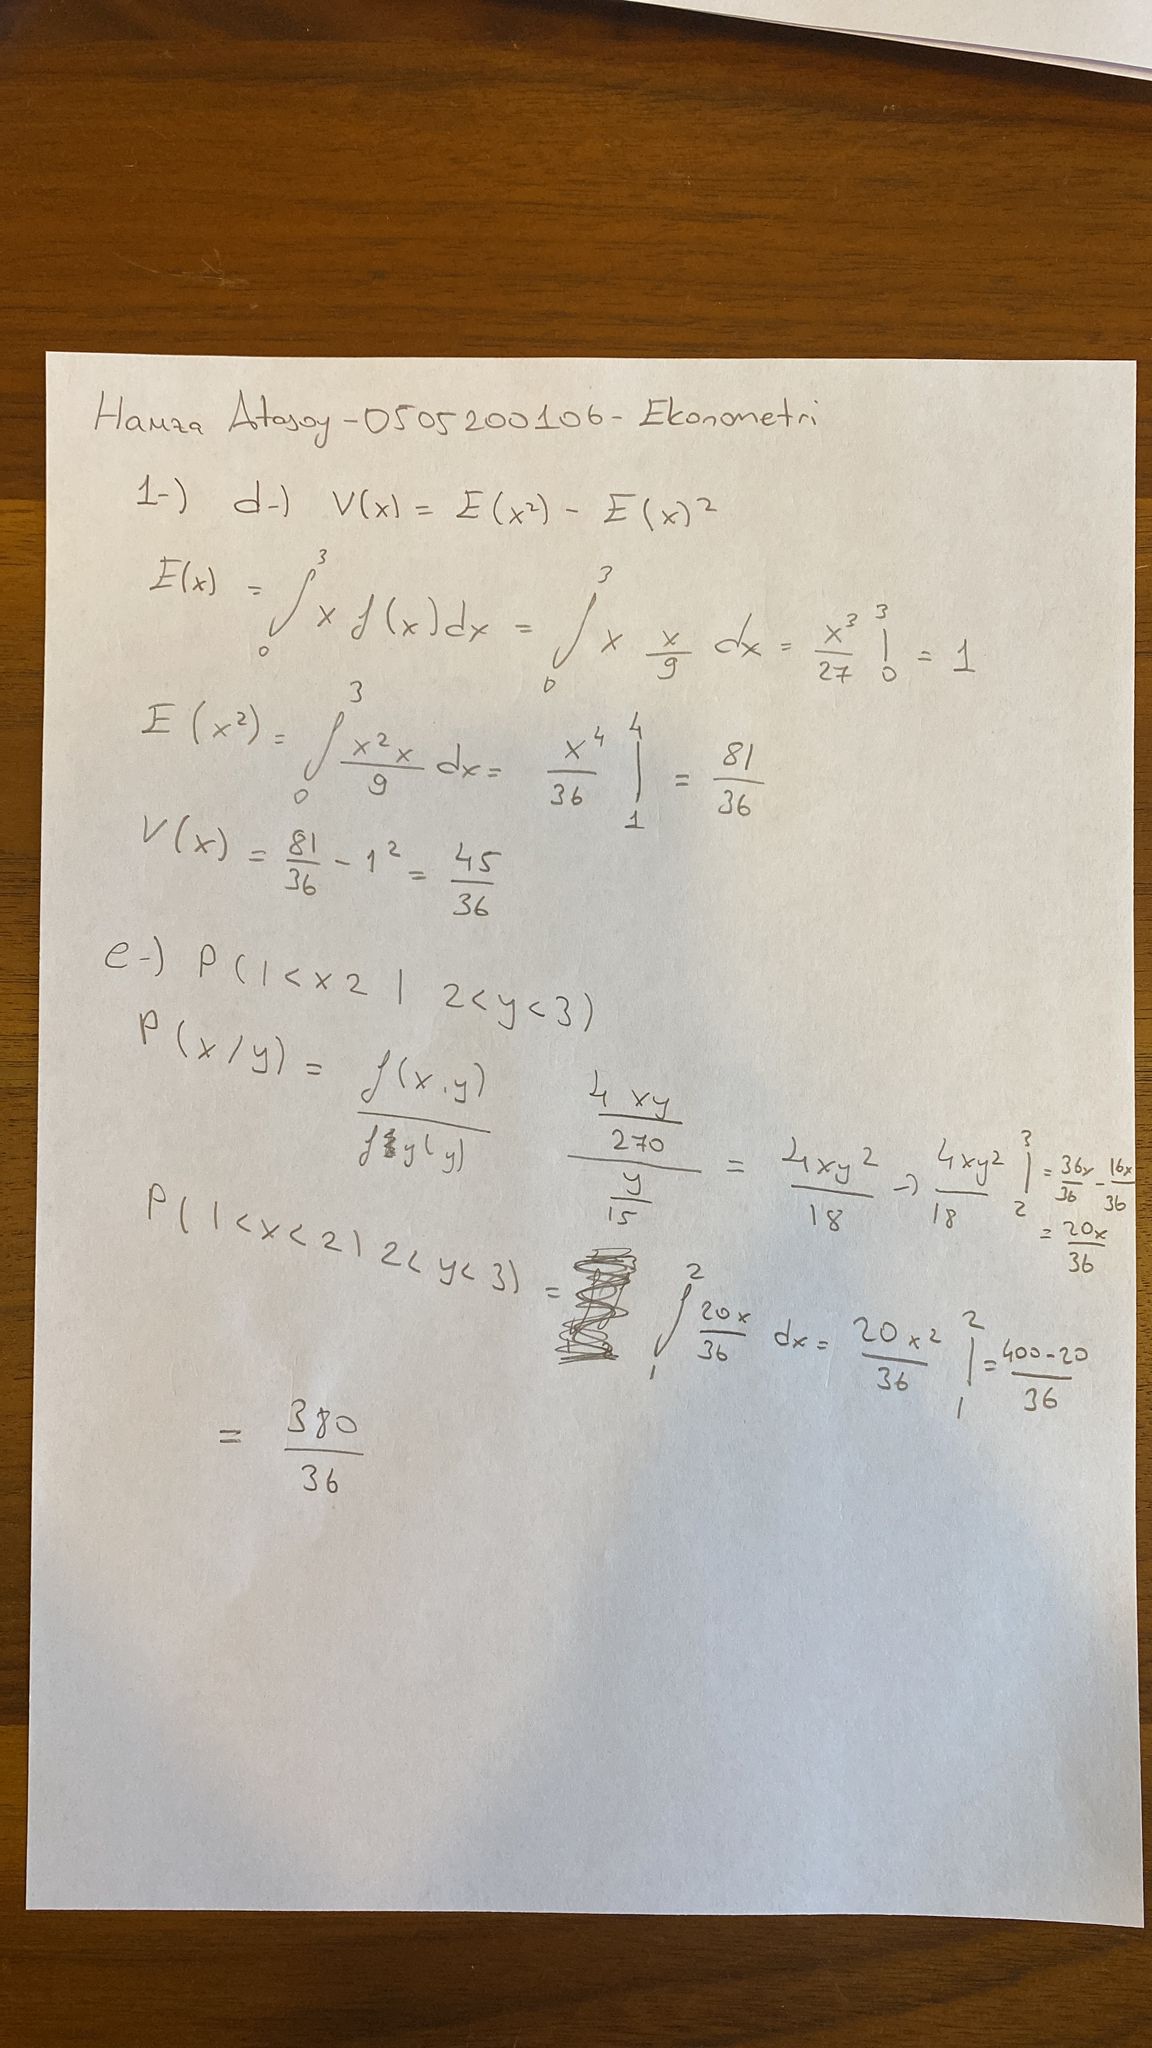 Hamza Atasoy - 0505200106 - Ekonometri
1-) d-) V(x) = E(x²) - E(x)²
E(x) = ∫₀³ x f(x)dx = ∫₀³ x x/9 dx = x³/27 |₀³ = 1
E(x²) = ∫₀³ x²x/9 dx = x⁴/36 |₁⁴ = 81/36
V(x) = 81/36 - 1² = 45/36
e-) P(1<x2 | 2<y<3)
P(x/y) = f(x,y)/fy(y) (4xy/270)/(y/15) = 4xy²/18 → 4xy²/18 |₂³ = 36x/36 - 16x/36
= 20x/36
P(1<x<2 | 2<y<3) = ∫₁² 20x/36 dx = 20x²/36 |₁² = 400-20/36
= 380/36